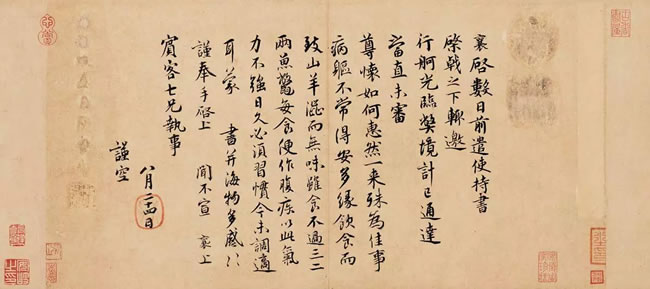 襄啓數日前遣使持書
棨戟之下輒邀
行舸光臨弊境計已通達
當直未審
尊懷如何惠然一来殊為佳事
病軀不常得安多緣飲食而
致山羊澀而無味雖食不過三二
兩魚蟹每食便作腹疾以此氣
力不強日久必須習慣今未調適
耳蒙 書并海物多感〻
謹奉手啓上 聞不宣 襄上
賓客七兄執事
八月廿四日
謹空